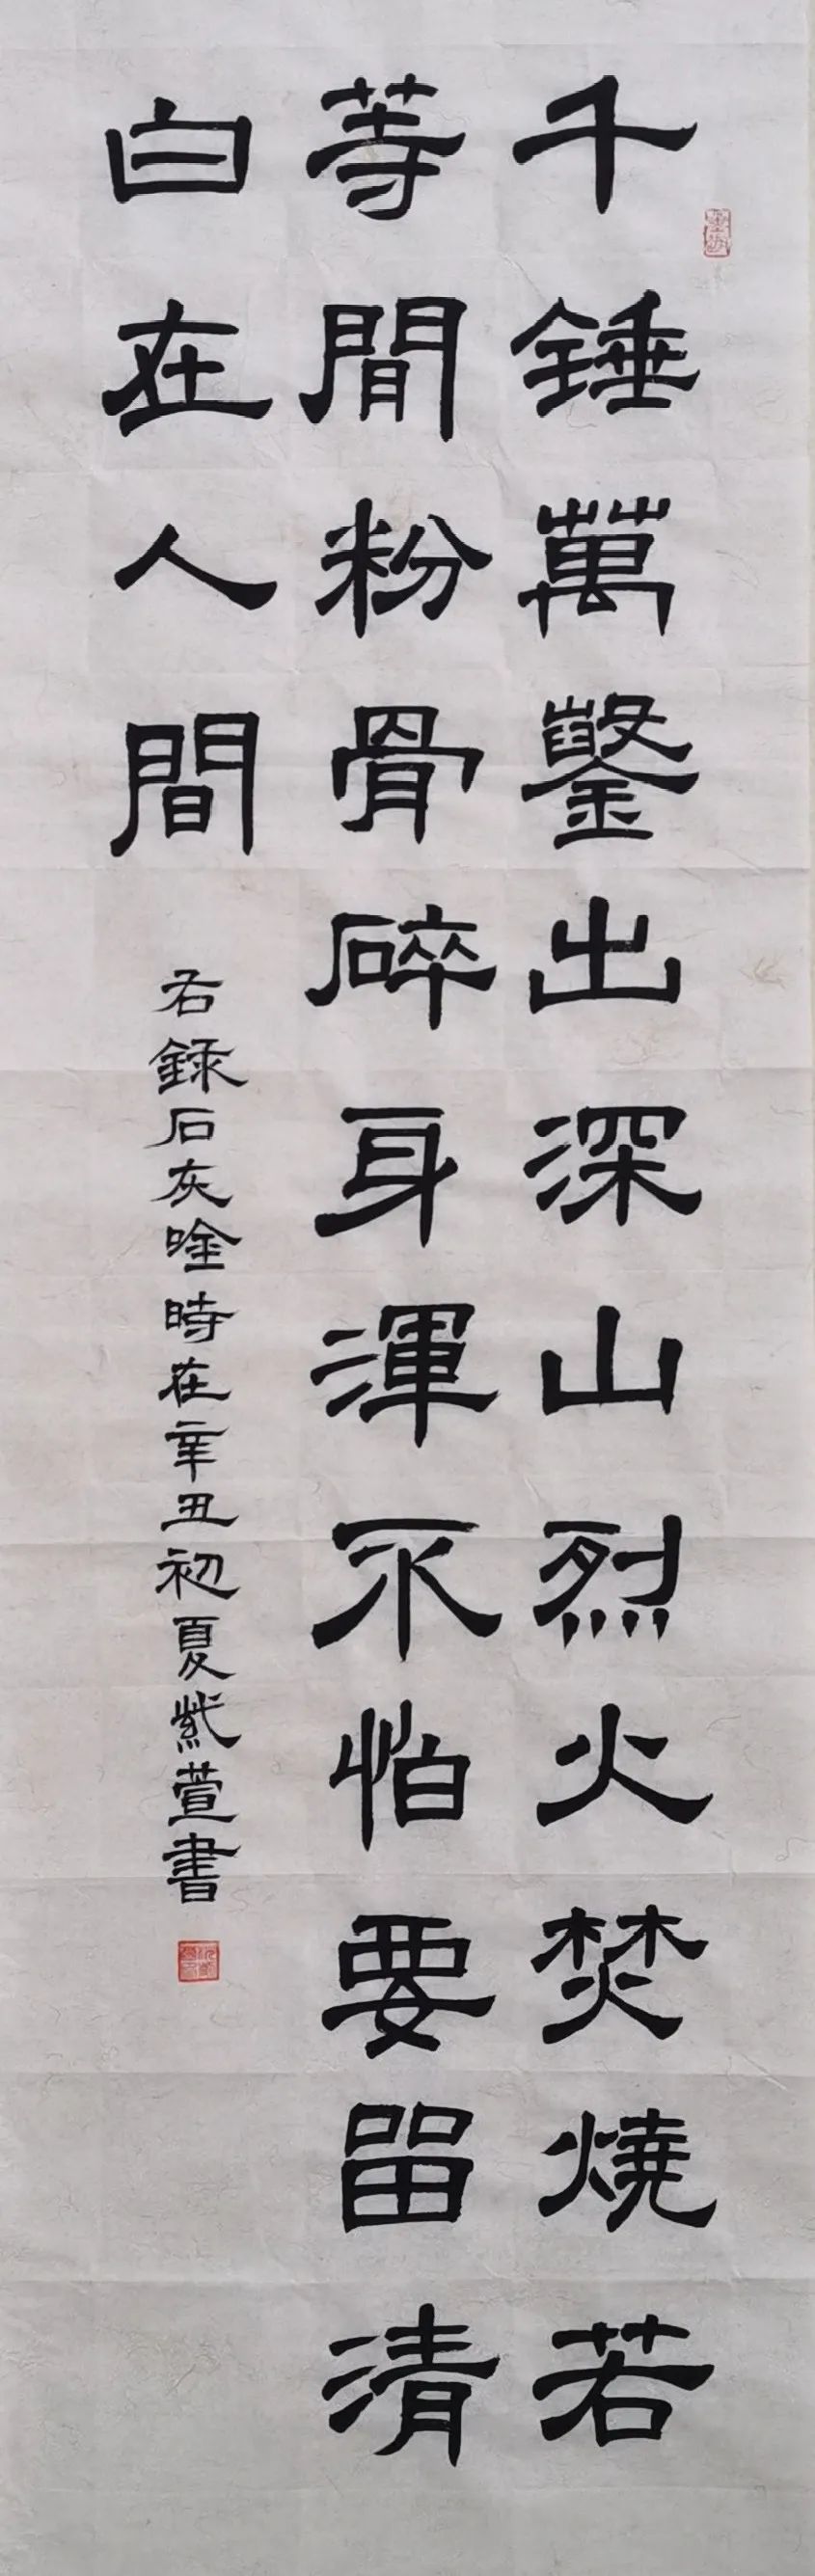 千錘萬鑿出深山烈火焚燒若
等閒粉骨碎身渾不怕要留清
白在人間
右録石灰唫時在辛丑初夏紫萱書